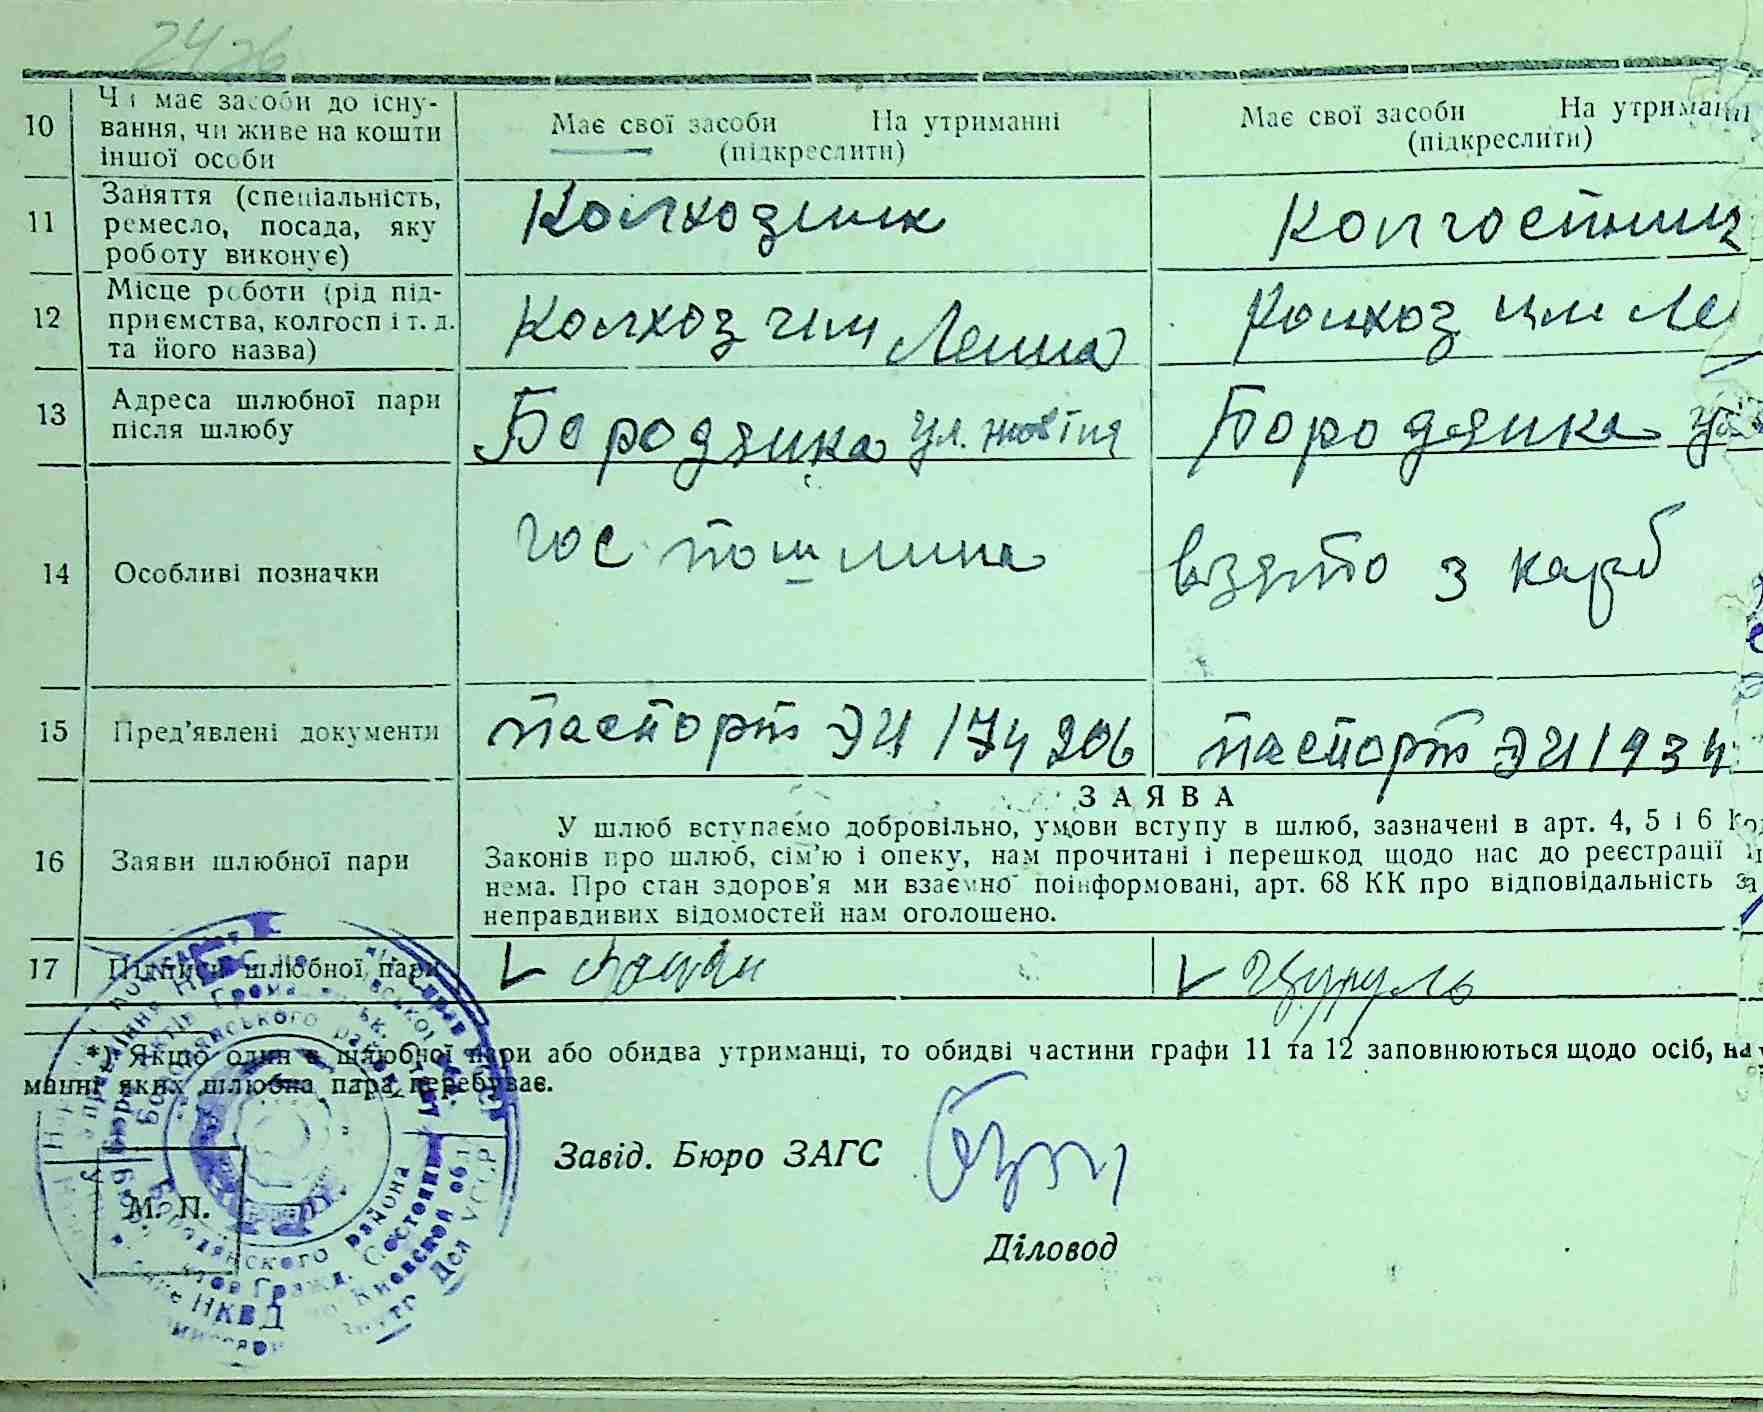 2426
10 Чи має засоби до існу-
вання, чи живе на кошти
іншої особи
Має свої засоби На утриманні
(підкреслити)
Має свої засоби На утриманні
(підкреслити)
11 Заняття (спеціальність,
ремесло, посада, яку
роботу виконує)
Колхозник
Колгоспниц
12 Місце роботи (рід під-
приємства, колгосп і т. д.
та його назва)
Колхоз им Ленина
Колхоз им Ле
13 Адреса шлюбної пари
після шлюбу
Бородянка ул. Жовтня
Бородянка
14 Особливі позначки
гос пошлина
взято 3 карб
15 Пред'явлені документи
паспорт ЭЧ 174206
паспорт ЭЧ 1934
16 Заяви шлюбної пари
ЗАЯВА
У шлюб вступаємо добровільно, умови вступу в шлюб, зазначені в арт. 4, 5 і 6 Ко
Законів про шлюб, сім'ю і опеку, нам прочитані і перешкод щодо нас до реєстрації
нема. Про стан здоров'я ми взаємно поінформовані, арт. 68 КК про відповідальність за
неправдивих відомостей нам оголошено.
17 Підписи шлюбної пари
*) Якщо один з шлюбної пари або обидва утриманці, то обидві частини графи 11 та 12 заповнюються щодо осіб, на
манні яких шлюбна пара перебуває.
Завід. Бюро ЗАГС
М. П.
Діловод
Бородянского района
Гражд. Состояния
Киевской обл.
НКВД